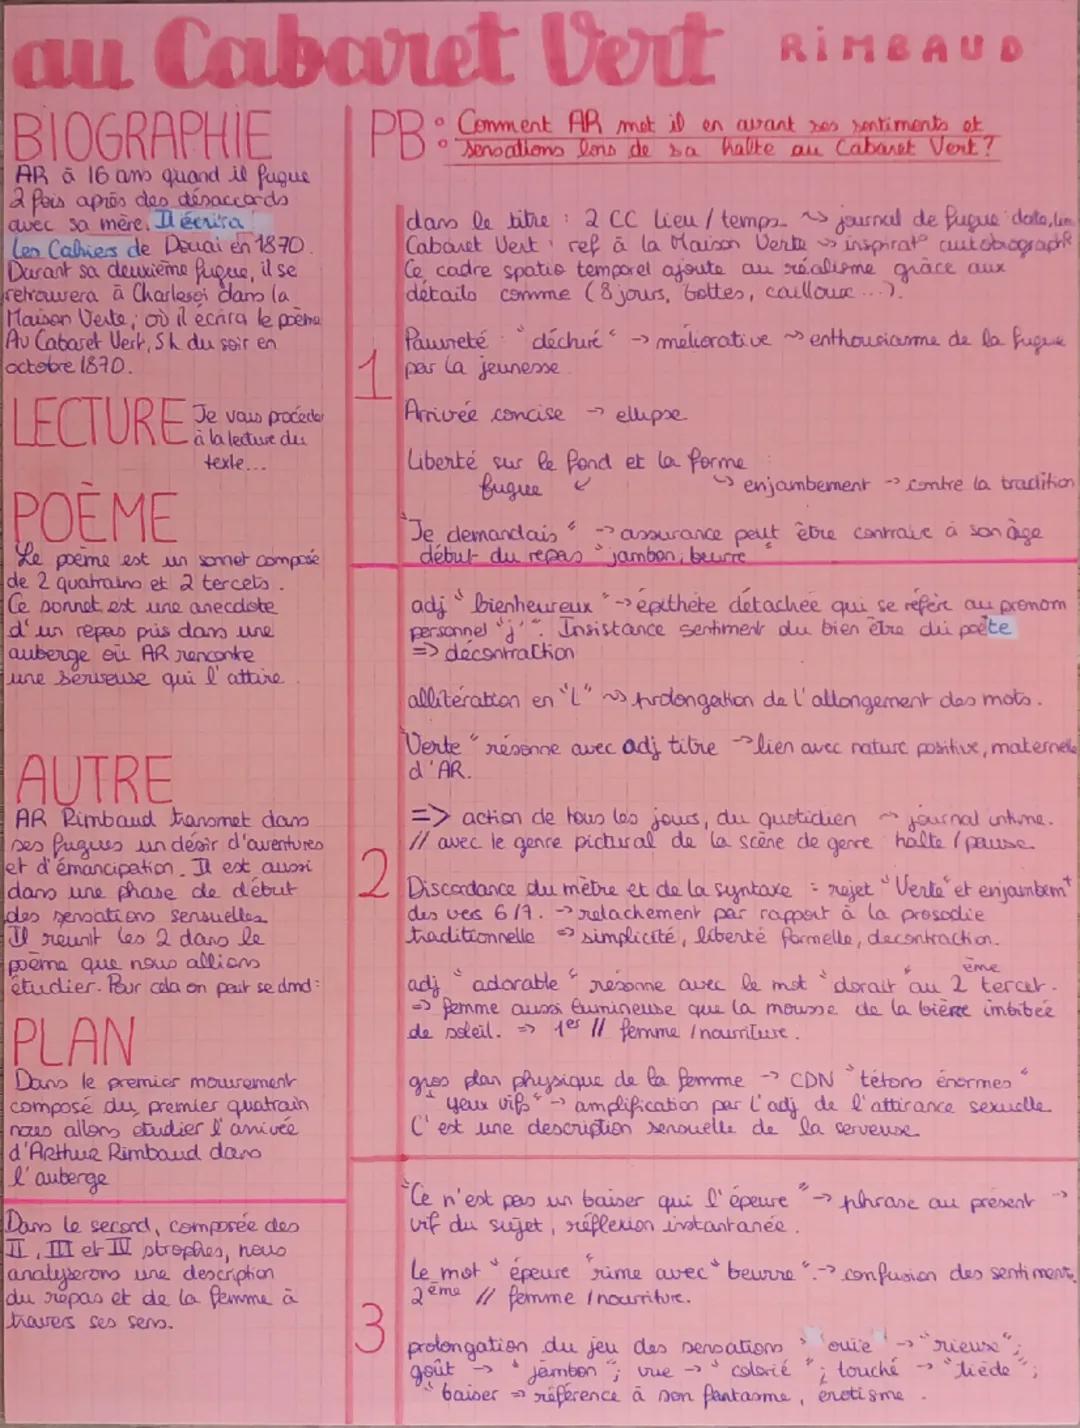 au Cabaret Vert RIMBAUD
BIOGRAPHIE
AR à 16 ans quand il fugue
2 fois après des désaccords
avec sa mère. Il écrira
Les Cahiers de Douai en 1870.
Durant sa deuxième fugue, il se
retrouvera à Charleroi dans la
Maison Verte, où il écrira le poème
Au Cabaret Vert, 5h du soir en
octobre 1870.
LECTURE Je vais procéder
à la lecture du
texte...
POÈME
Le poème est un sonnet composé
de 2 quatrains et 2 tercets.
Ce sonnet est une anecdote
d'un repas pris dans une
auberge où AR rencontre
une serveuse qui l'attire.
AUTRE
AR Rimbaud transmet dans
ses fugues un désir d'aventures
et d'émancipation. Il est aussi
dans une phase de début
des sensations sensuelles.
Il reunit les 2 dans le
poème que nous allions
étudier. Pour cela on peut se dmd :
PLAN
Dans le premier mouvement
composé du premier quatrain
nous allons etudier l'arrivée
d'Arthur Rimbaud dans
l'auberge
Dans le second, composée des
II, III et IV strophes, nous
analyserons une description
du repas et de la femme à
travers ses sens.
PB : Comment AR met il en avant ses sentiments et
sensations lors de sa halte au Cabaret Vert ?
1
dans le titre : 2 CC lieu / temps ~> journal de fugue : date, lieu
Cabaret Vert : ref à la Maison Verte ~> inspirat° autobiograph
Ce cadre spatio temporel ajoute au réalisme grâce aux
détails comme (8 jours, bottes, cailloux ...).
Pauvreté : "déchiré" -> méliorative ~> enthousiasme de la fugue
par la jeunesse
Arrivée concise -> ellipse
Liberté sur le fond et la forme :
fugue enjambement -> contre la tradition
"Je demandais" -> assurance peut être contraire à son âge
début du repas "jambon, beurre"
2
adj "bienheureux" -> épithète détachée qui se réfère au pronom
personnel "j'". Insistance sentiment du bien être du poète
=> décontraction
allitération en "L" ~> prolongation de l'allongement des mots.
"Verte" résonne avec adj titre -> lien avec nature positive, maternelle
d'AR.
=> action de tous les jours, du quotidien ~ journal intime.
// avec le genre pictural de la scène de genre halte / pause.
Discordance du mètre et de la syntaxe : rejet "Verte" et enjambemt
des vers 6/7. -> relachement par rapport à la prosodie
traditionnelle => simplicité, liberté formelle, decontraction.
adj "adorable" résonne avec le mot "dorait" au 2ème tercet.
=> femme aussi lumineuse que la mousse de la bière imbibée
de soleil. => 1er // femme / nourriture.
gros plan physique de la femme -> CDN "tétons énormes"
"yeux vifs" -> amplification par l'adj de l'attirance sexuelle
C'est une description sensuelle de la serveuse
3
"Ce n'est pas un baiser qui l'épeure" -> phrase au présent ->
vif du sujet, réflexion instantanée.
Le mot "épeure" rime avec "beurre". -> confusion des sentiments.
2ème // femme / nourriture.
prolongation du jeu des sensations > "ouïe" -> "rieuse" ;
goût -> "jambon" ; vue -> "colorié" ; touché -> "tiède" ;
"baiser => référence à son fantasme, érotisme.